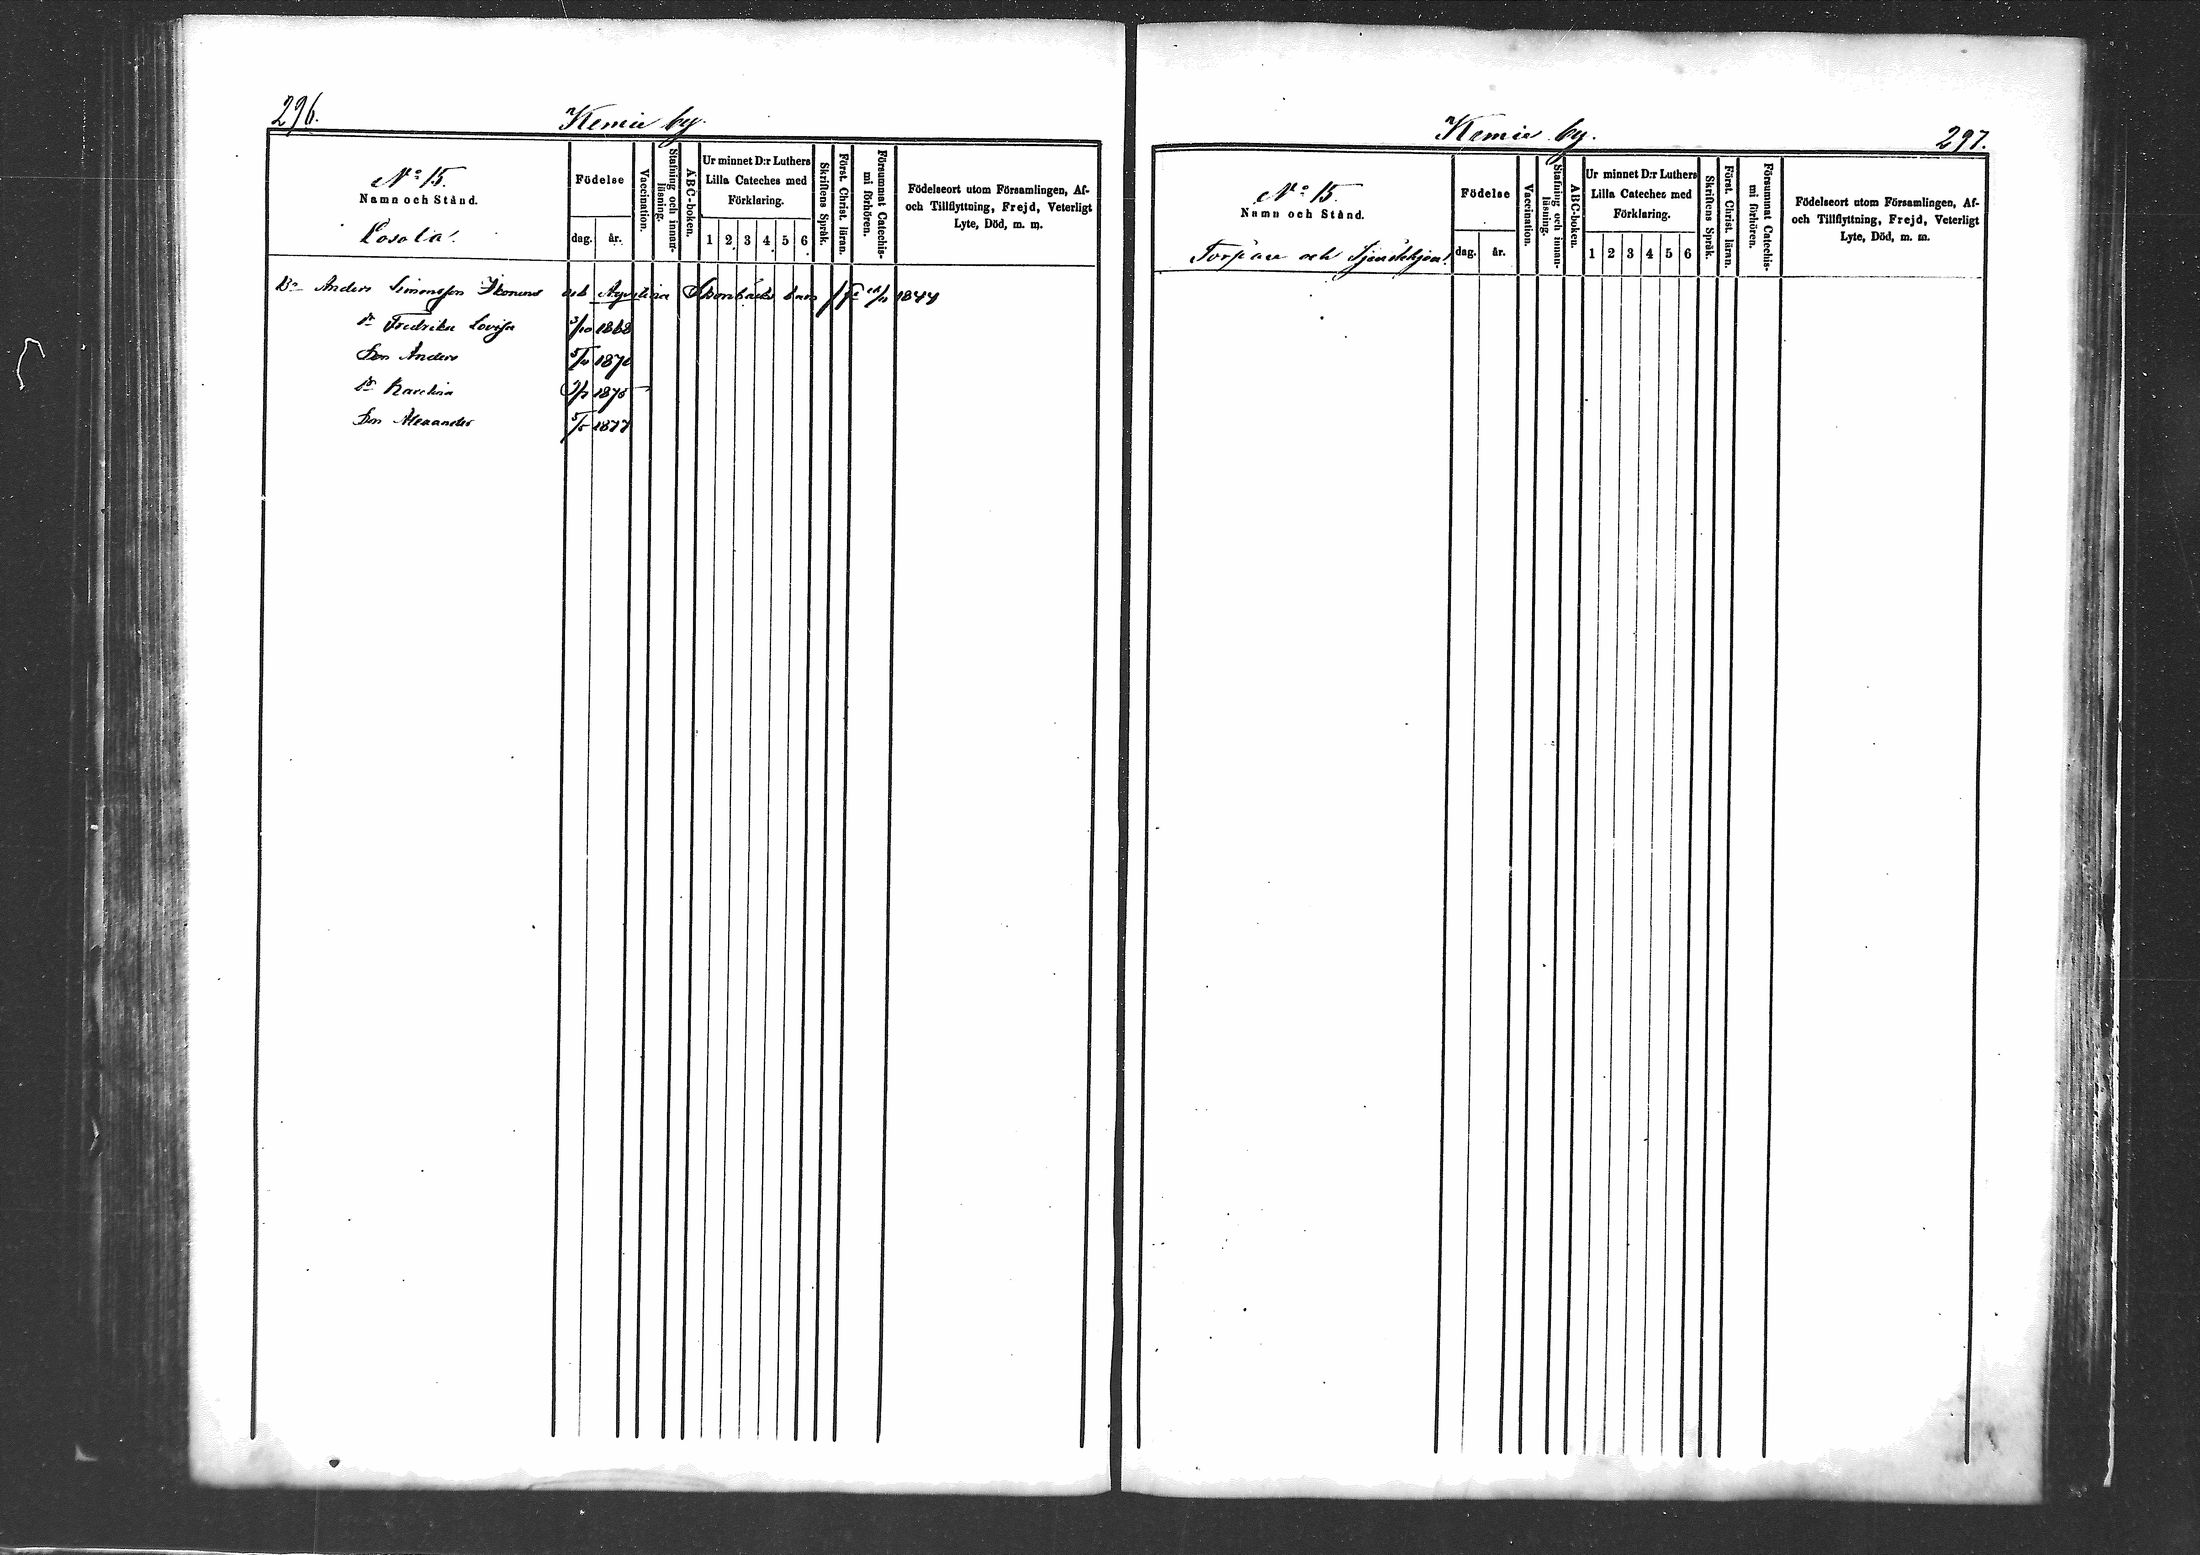 296.
Kemie by.
No 15.
Namn och Stånd.
Losola.
Födelse
dag. år.
Vaccination.
Stafning och innan-
läsning.
ABC-boken.
Ur minnet D:r Luthers
Lilla Cateches med
Förklaring.
1 2 3 4 5 6
Skriftens Språk.
Först. Christ. läran.
Försummat Catechis-
mi förhören.
Födelseort utom Församlingen, Af-
och Tillflyttning, Frejd, Veterligt
Lyte, Död, m. m.
Anders Simonsson Ikonens och barn 1844
Dr Fredrika Lovisa 3/10 1868
Son Anders 1870
Dr Karolina 1875
Son Alexander 1877
Kemie by.
297.
No 15.
Namn och Stånd.
Torpare och Tjenstehjon.
Födelse
dag. år.
Vaccination.
Stafning och innan-
läsning.
ABC-boken.
Ur minnet D:r Luthers
Lilla Cateches med
Förklaring.
1 2 3 4 5 6
Skriftens Språk.
Först. Christ. läran.
Försummat Catechis-
mi förhören.
Födelseort utom Församlingen, Af-
och Tillflyttning, Frejd, Veterligt
Lyte, Död, m. m.